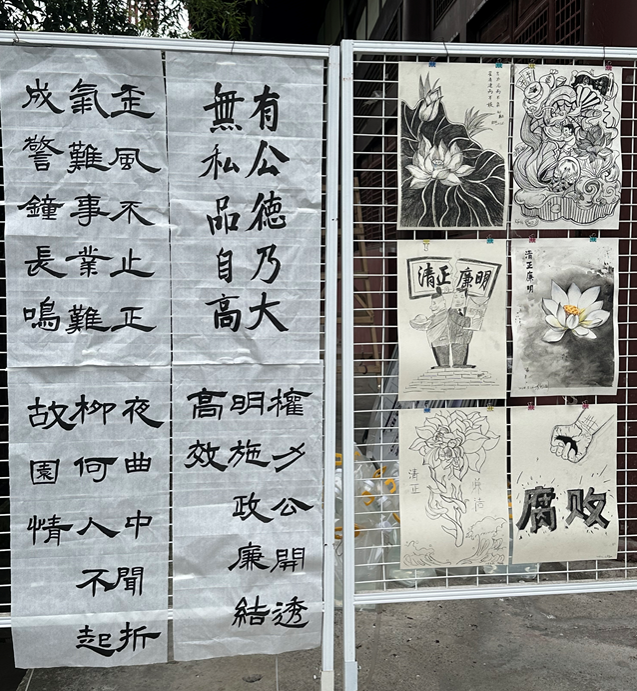 有公德乃大
無私品自高
歪風不止正
氣難事業難
成警鐘長鳴
權力公開透
明施政廉結
高效
夜曲中聞折
柳何人不起
故園情
清正廉明
清正廉明
清正
腐败